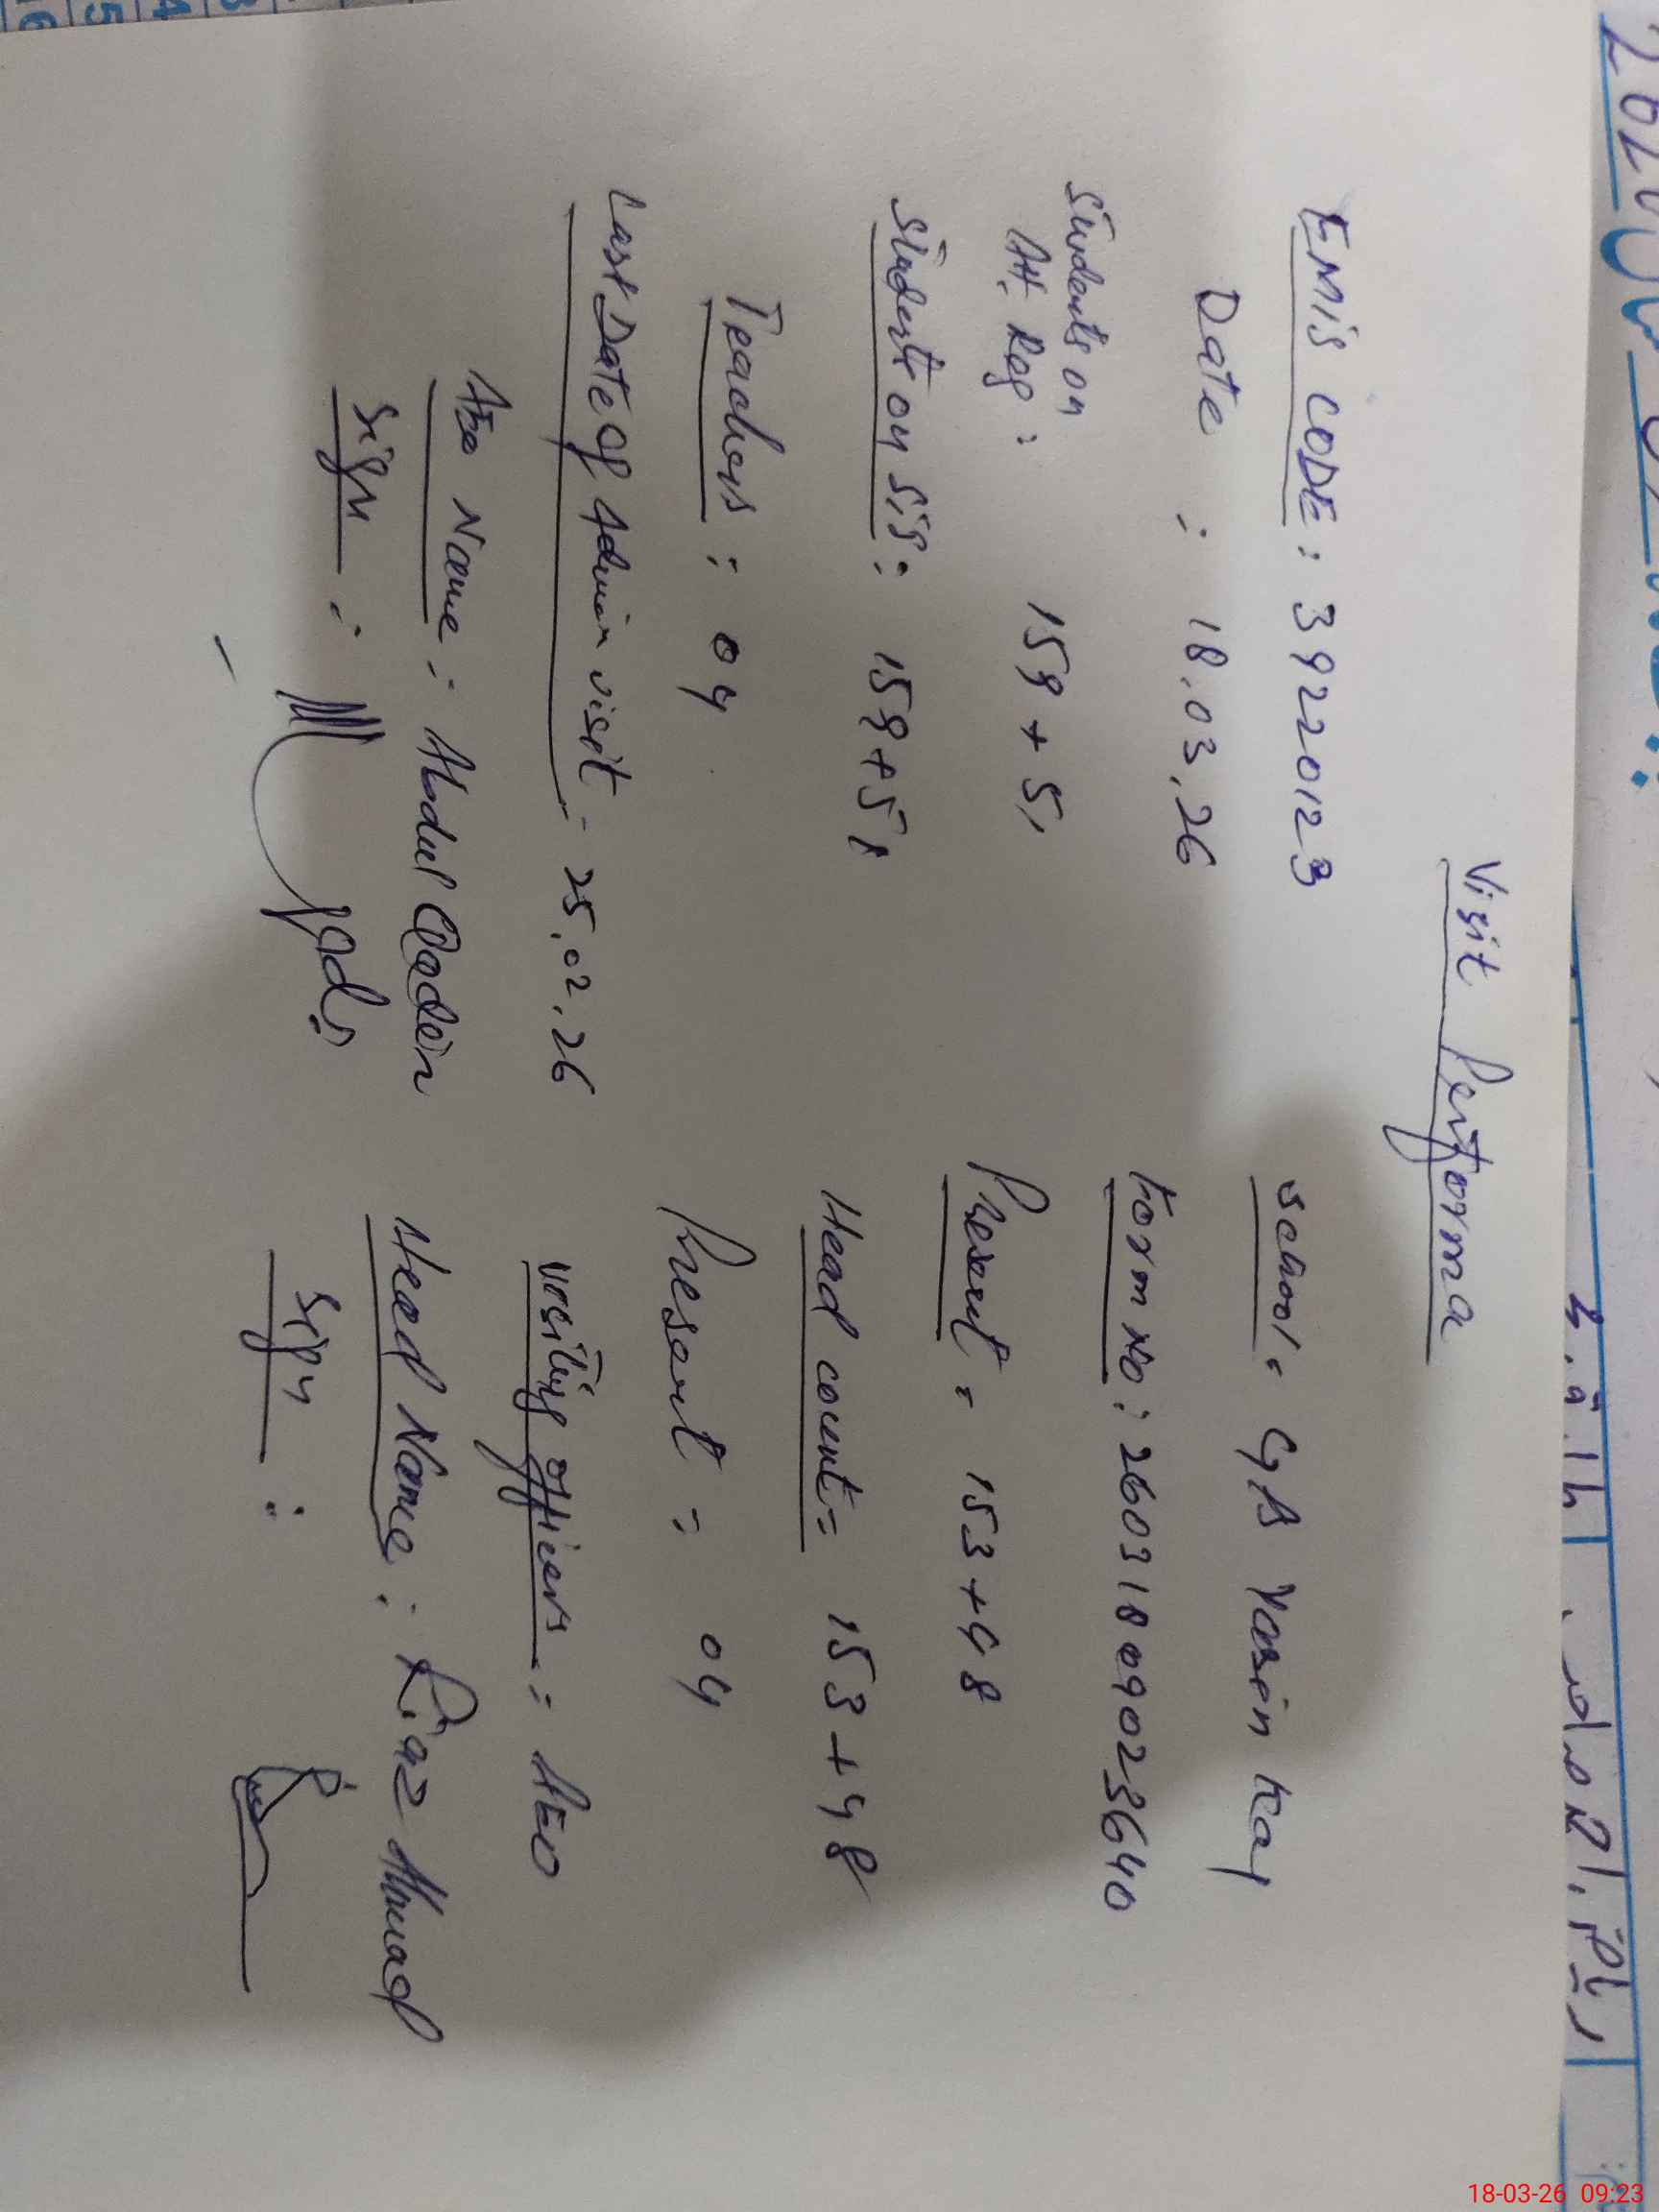 Visit Performa
EMIS CODE: 39220123
School: GPS Yasin Kay
Date : 18.03.26
Form No: 26031809023640
Students on
Att. Reg : 159 + 51
Present = 153+48
Students on SIS: 159+51
Head count = 153+48
Teachers : 04
Present = 04
Last Date of Admin visit - 25.02.26
Visiting officers = AEO
AEO Name : Abdul Qadir
Head Name : Riaz Ahmad
Sign :
Sign :
18-03-26 09:23